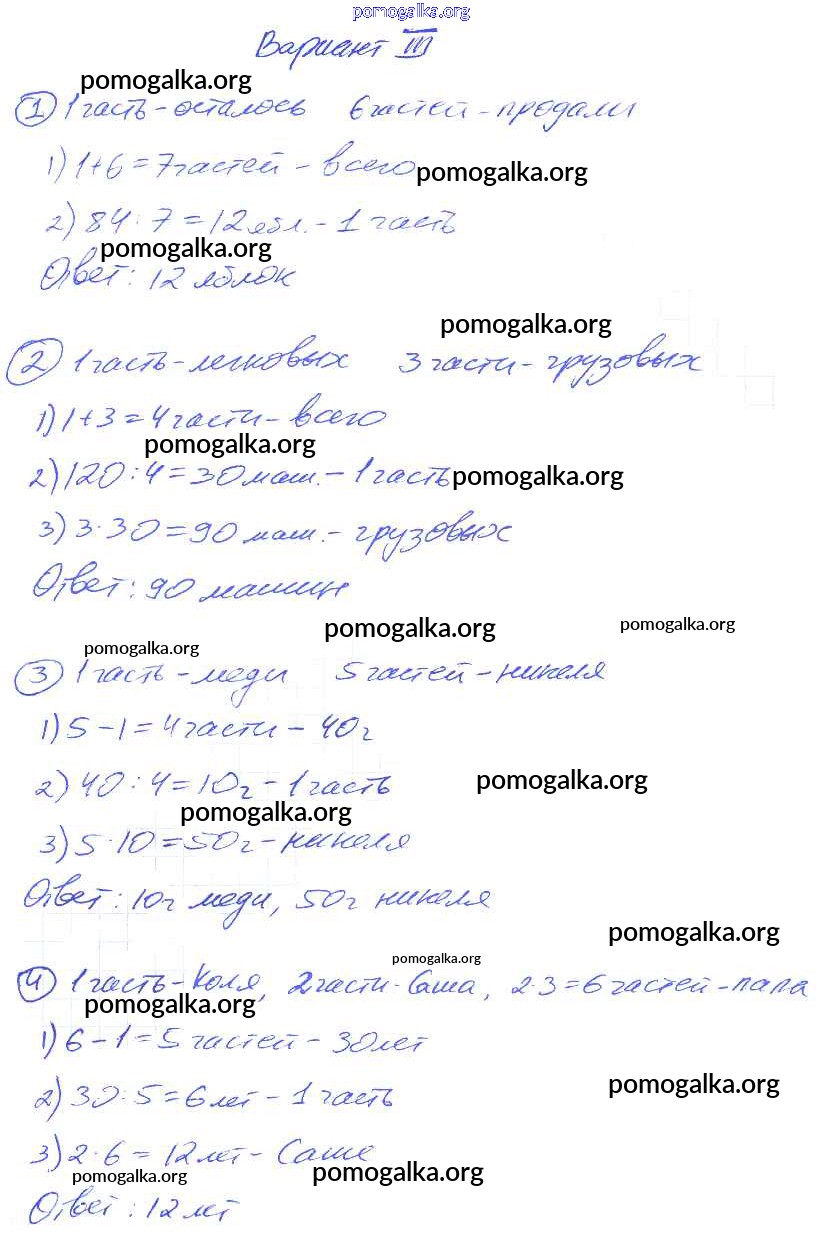 pomogalka.org
Вариант III
pomogalka.org
① 1 часть - осталось 6 частей - продали
1) 1+6=7 частей - всего pomogalka.org
2) 84:7=12 ябл. - 1 часть
pomogalka.org
Ответ: 12 яблок
pomogalka.org
② 1 часть - легковых 3 части - грузовых
1) 1+3=4 части - всего
pomogalka.org
2) 120:4=30 маш. - 1 часть pomogalka.org
3) 3·30=90 маш. - грузовых
Ответ: 90 машин
pomogalka.org pomogalka.org
pomogalka.org
③ 1 часть - меди 5 частей - никеля
1) 5-1=4 части - 40г
2) 40:4=10г - 1 часть pomogalka.org
pomogalka.org
3) 5·10=50г - никеля
Ответ: 10г меди, 50г никеля
pomogalka.org
pomogalka.org
④ 1 часть - Коля, 2 части - Саша, 2·3=6 частей - папа
pomogalka.org
1) 6-1=5 частей - 30 лет
pomogalka.org
2) 30:5=6 лет - 1 часть
3) 2·6=12 лет - Саше
pomogalka.org pomogalka.org
Ответ: 12 лет